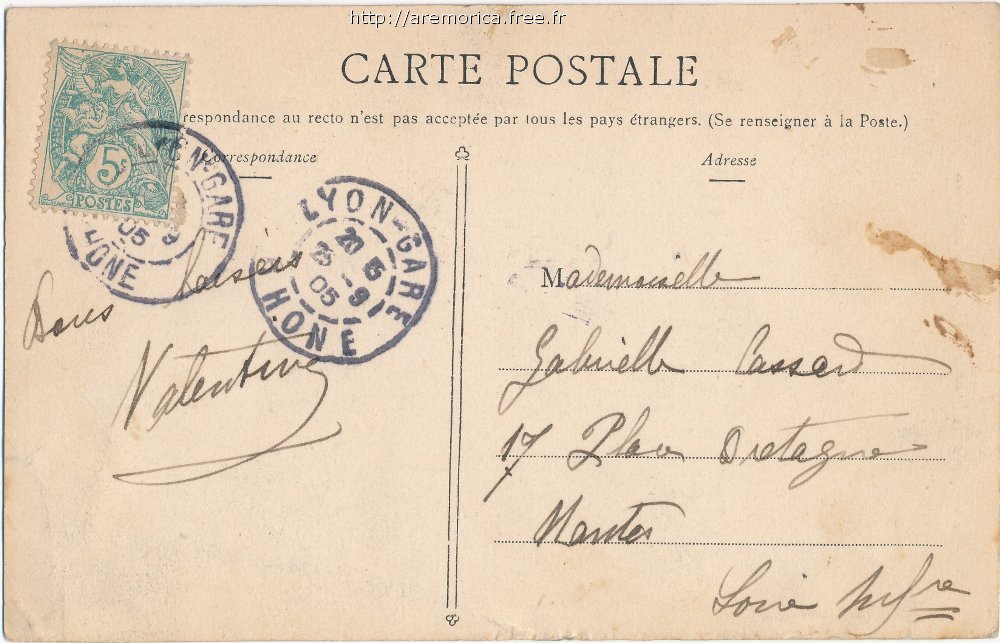 http://aremorica.free.fr
CARTE POSTALE
respondance au recto n'est pas acceptée par tous les pays étrangers. (Se renseigner à la Poste.)
Correspondance
Adresse
5c
POSTES
N-GARE
05 9
HONE
LYON-GARE
20 15
25 -9
05
H.ONE
Bons baisers
Valentine
Mademoiselle
Gabrielle Cassard
17 Place Bretagne
Nantes
Loire Infre